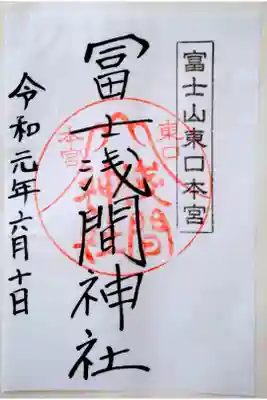 富士山東口本宮
冨士浅間神社
東口
本宮
浅間
神社
令和元年六月十日